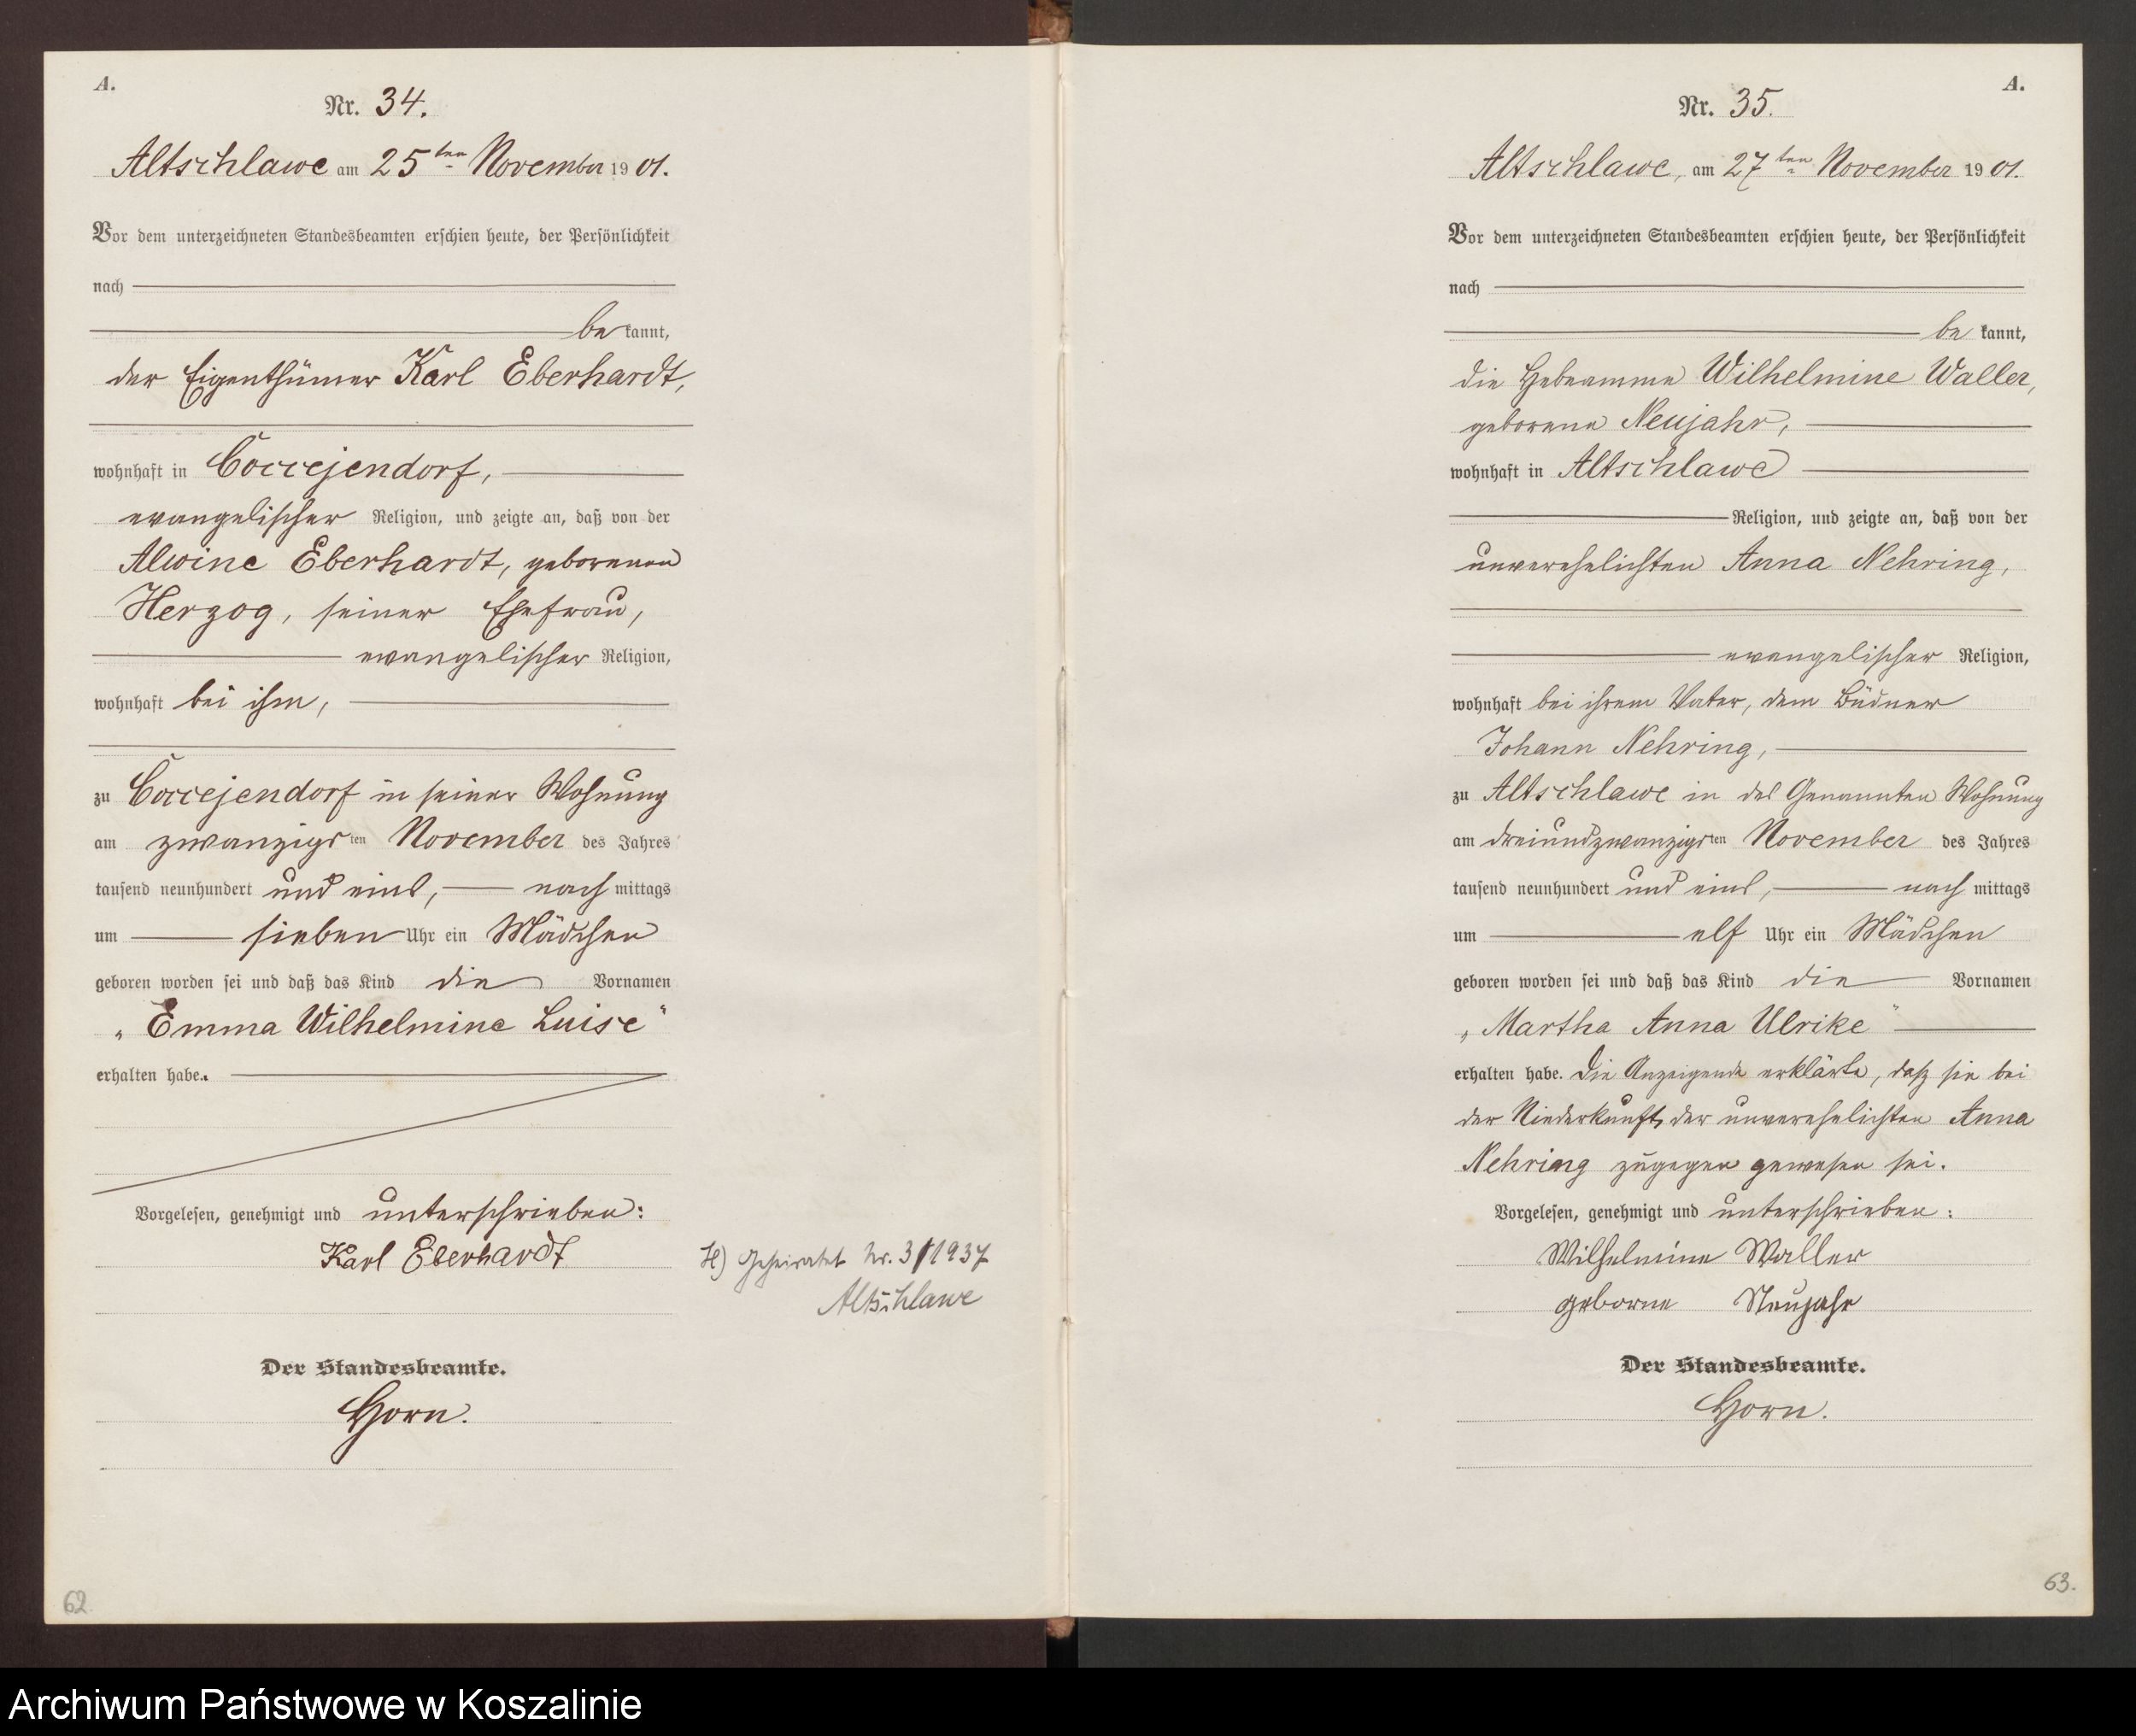 A.
Nr. 34.
Altschlawe am 25ten November 1901.
Vor dem unterzeichneten Standesbeamten erschien heute, der Persönlichkeit
nach
be kannt,
der Eigenthümer Karl Eberhardt,
wohnhaft in Coccejendorf,
evangelischer Religion, und zeigte an, daß von der
Alwine Eberhardt, geborenen
Herzog, seiner Ehefrau,
evangelischer Religion,
wohnhaft bei ihm,
zu Coccejendorf in seiner Wohnung
am zwanzigsten November des Jahres
tausend neunhundert und eins, nach mittags
um sieben Uhr ein Mädchen
geboren worden sei und daß das Kind die Vornamen
„Emma Wilhelmine Luise"
erhalten habe.
Vorgelesen, genehmigt und unterschrieben:
Karl Eberhardt
Der Standesbeamte.
Horn.
H) Geheiratet Nr. 3/1937
Altschlawe
62
A.
Nr. 35.
Altschlawe, am 27ten November 1901.
Vor dem unterzeichneten Standesbeamten erschien heute, der Persönlichkeit
nach
be kannt,
die Hebeamme Wilhelmine Waller,
geborene Neujahr,
wohnhaft in Altschlawe
Religion, und zeigte an, daß von der
unverehelichten Anna Nehring,
evangelischer Religion,
wohnhaft bei ihrem Vater, dem Büdner
Johann Nehring,
zu Altschlawe in des Genannten Wohnung
am dreiundzwanzigsten November des Jahres
tausend neunhundert und eins, nach mittags
um elf Uhr ein Mädchen
geboren worden sei und daß das Kind die Vornamen
„Martha Anna Ulrike"
erhalten habe. Die Anzeigende erklärte, daß sie bei
der Niederkunft der unverehelichten Anna
Nehring zugegen gewesen sei.
Vorgelesen, genehmigt und unterschrieben:
Wilhelmine Waller
geborne Neujahr
Der Standesbeamte.
Horn.
63.
Archiwum Państwowe w Koszalinie